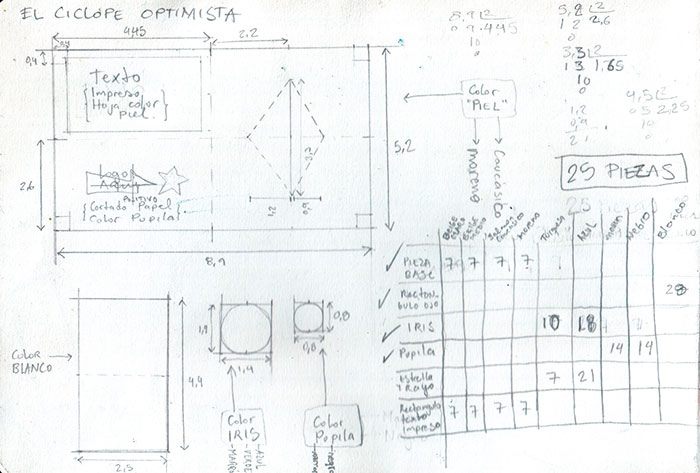 EL CICLOPE OPTIMISTA
445
2.2
0,4
0,4
Texto
Impreso
Hoja color
Piel
2.6
Logo
Positivo
Cortado Papel
Color Pupila
1,2
0,9
5,2
8,9
Color
"PIEL"
Moreno
Caucásico
8,9 2
0 9 .445
10
0
5,2 2
1 2 2,6
0
3,3 2
1 3 1.65
10
0
4,5 2
05 2.25
10
0
1,2
0,9
2,1
25 PIEZAS
25
Moreno
Turquesa
AZUL
Negro
Blanco
PIEZA
BASE
7 7 7 7
Rectan
bulo ojo
28
IRIS
10 18
Pupila
14 14
Estrella
y Rayo
7 21
Rectangulo
texto
impreso
7 7 7 7
COLOR
BLANCO
4,4
2,5
1,9
1,4
0,8
0,8
Color
IRIS
-AZUL
-VERDE
-MARRÓN
Color
Pupila
negro